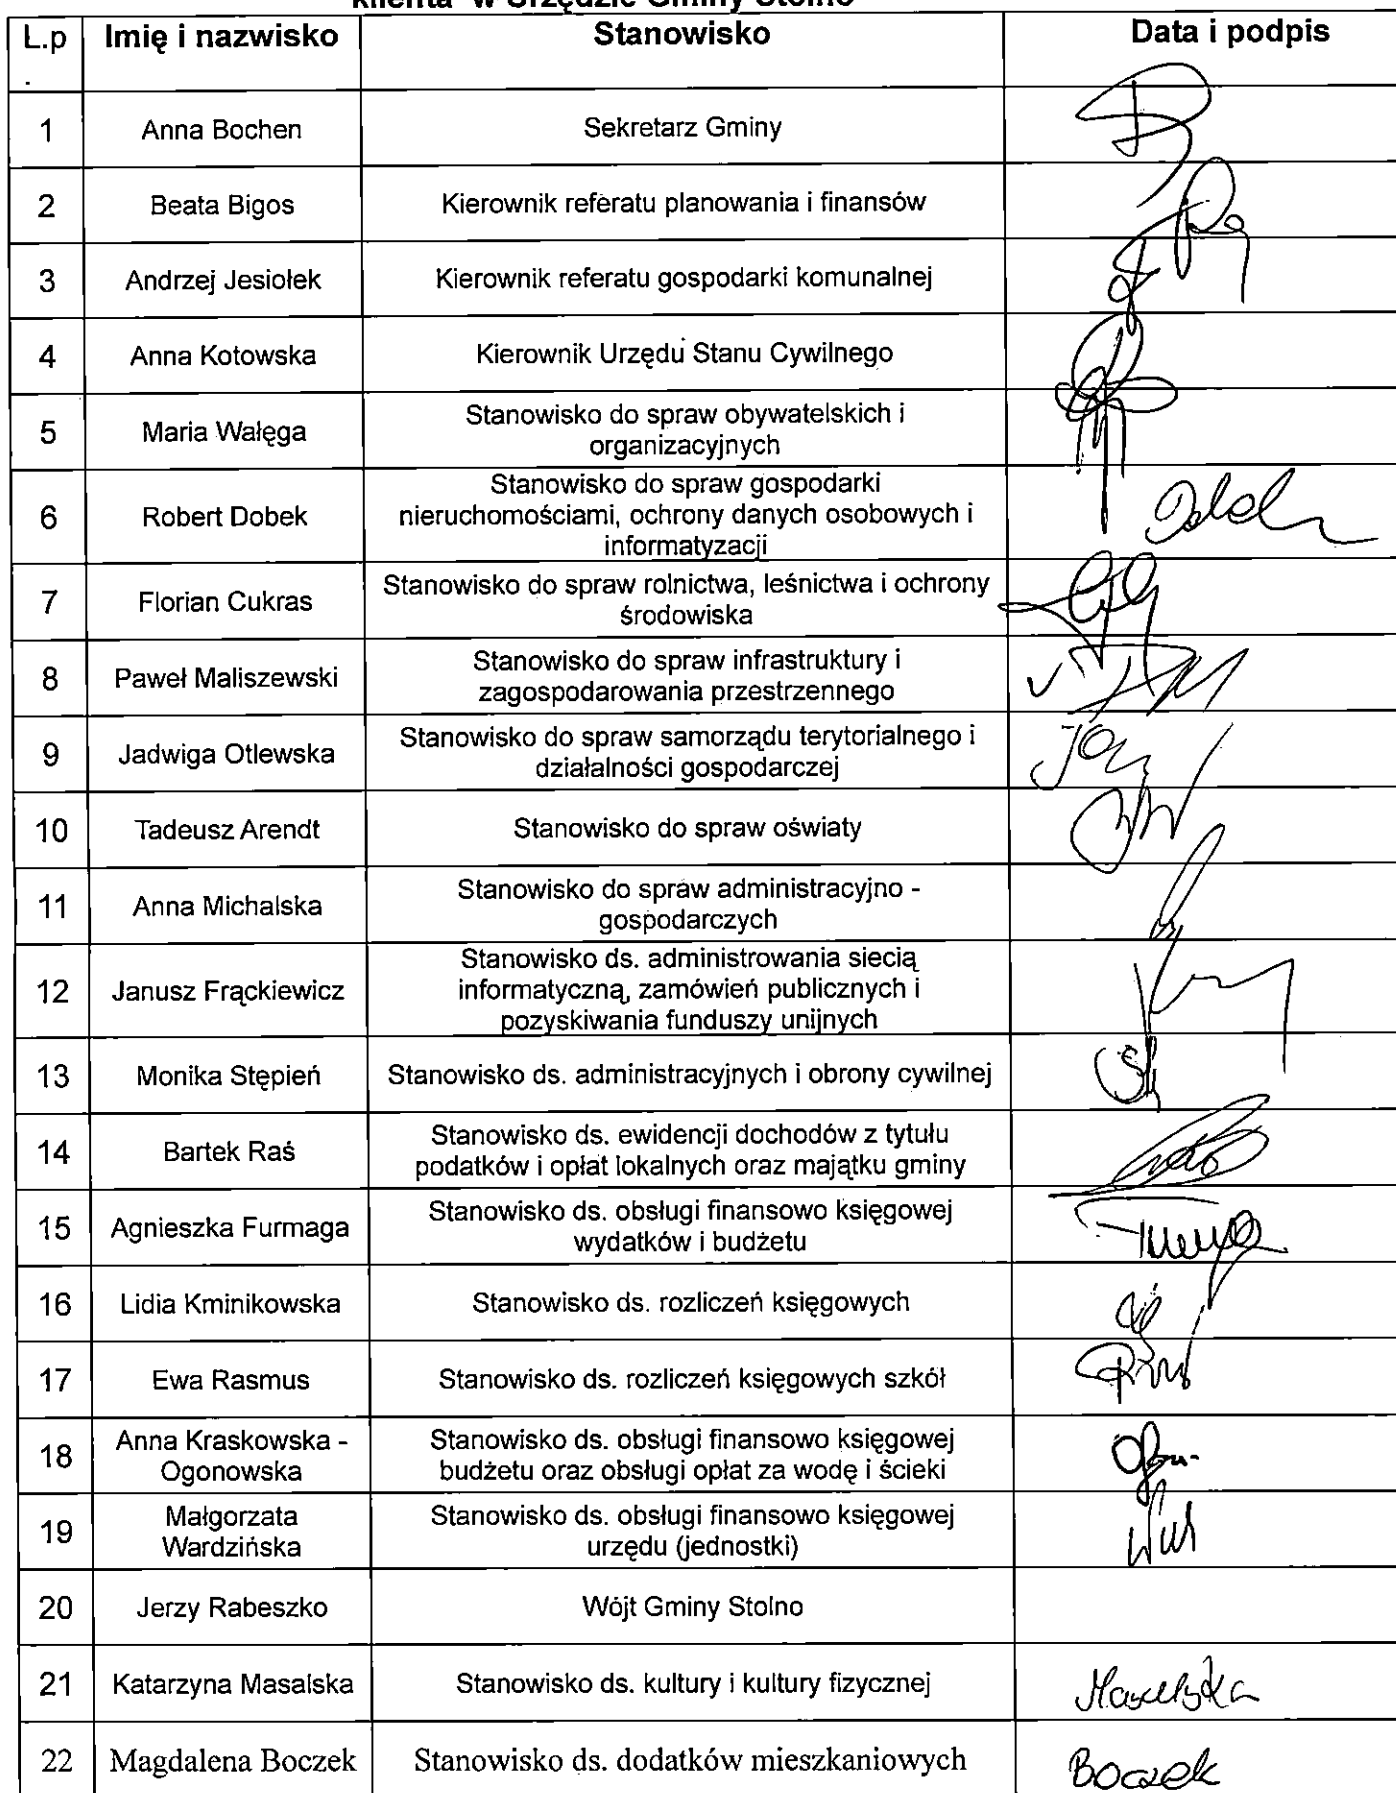 klienta w Urzędzie Gminy Stolno
L.p Imię i nazwisko Stanowisko Data i podpis
.
1 Anna Bochen Sekretarz Gminy
2 Beata Bigos Kierownik referatu planowania i finansów
3 Andrzej Jesiołek Kierownik referatu gospodarki komunalnej
4 Anna Kotowska Kierownik Urzędu Stanu Cywilnego
5 Maria Wałęga Stanowisko do spraw obywatelskich i
organizacyjnych
6 Robert Dobek Stanowisko do spraw gospodarki
nieruchomościami, ochrony danych osobowych i
informatyzacji
7 Florian Cukras Stanowisko do spraw rolnictwa, leśnictwa i ochrony
środowiska
8 Paweł Maliszewski Stanowisko do spraw infrastruktury i
zagospodarowania przestrzennego
9 Jadwiga Otlewska Stanowisko do spraw samorządu terytorialnego i
działalności gospodarczej
10 Tadeusz Arendt Stanowisko do spraw oświaty
11 Anna Michalska Stanowisko do spraw administracyjno -
gospodarczych
12 Janusz Frąckiewicz Stanowisko ds. administrowania siecią
informatyczną, zamówień publicznych i
pozyskiwania funduszy unijnych
13 Monika Stępień Stanowisko ds. administracyjnych i obrony cywilnej
14 Bartek Raś Stanowisko ds. ewidencji dochodów z tytułu
podatków i opłat lokalnych oraz majątku gminy
15 Agnieszka Furmaga Stanowisko ds. obsługi finansowo księgowej
wydatków i budżetu
16 Lidia Kminikowska Stanowisko ds. rozliczeń księgowych
17 Ewa Rasmus Stanowisko ds. rozliczeń księgowych szkół
18 Anna Kraskowska - Stanowisko ds. obsługi finansowo księgowej
Ogonowska budżetu oraz obsługi opłat za wodę i ścieki
19 Małgorzata Stanowisko ds. obsługi finansowo księgowej
Wardzińska urzędu (jednostki)
20 Jerzy Rabeszko Wójt Gminy Stolno
21 Katarzyna Masalska Stanowisko ds. kultury i kultury fizycznej Masalska
22 Magdalena Boczek Stanowisko ds. dodatków mieszkaniowych Boczek